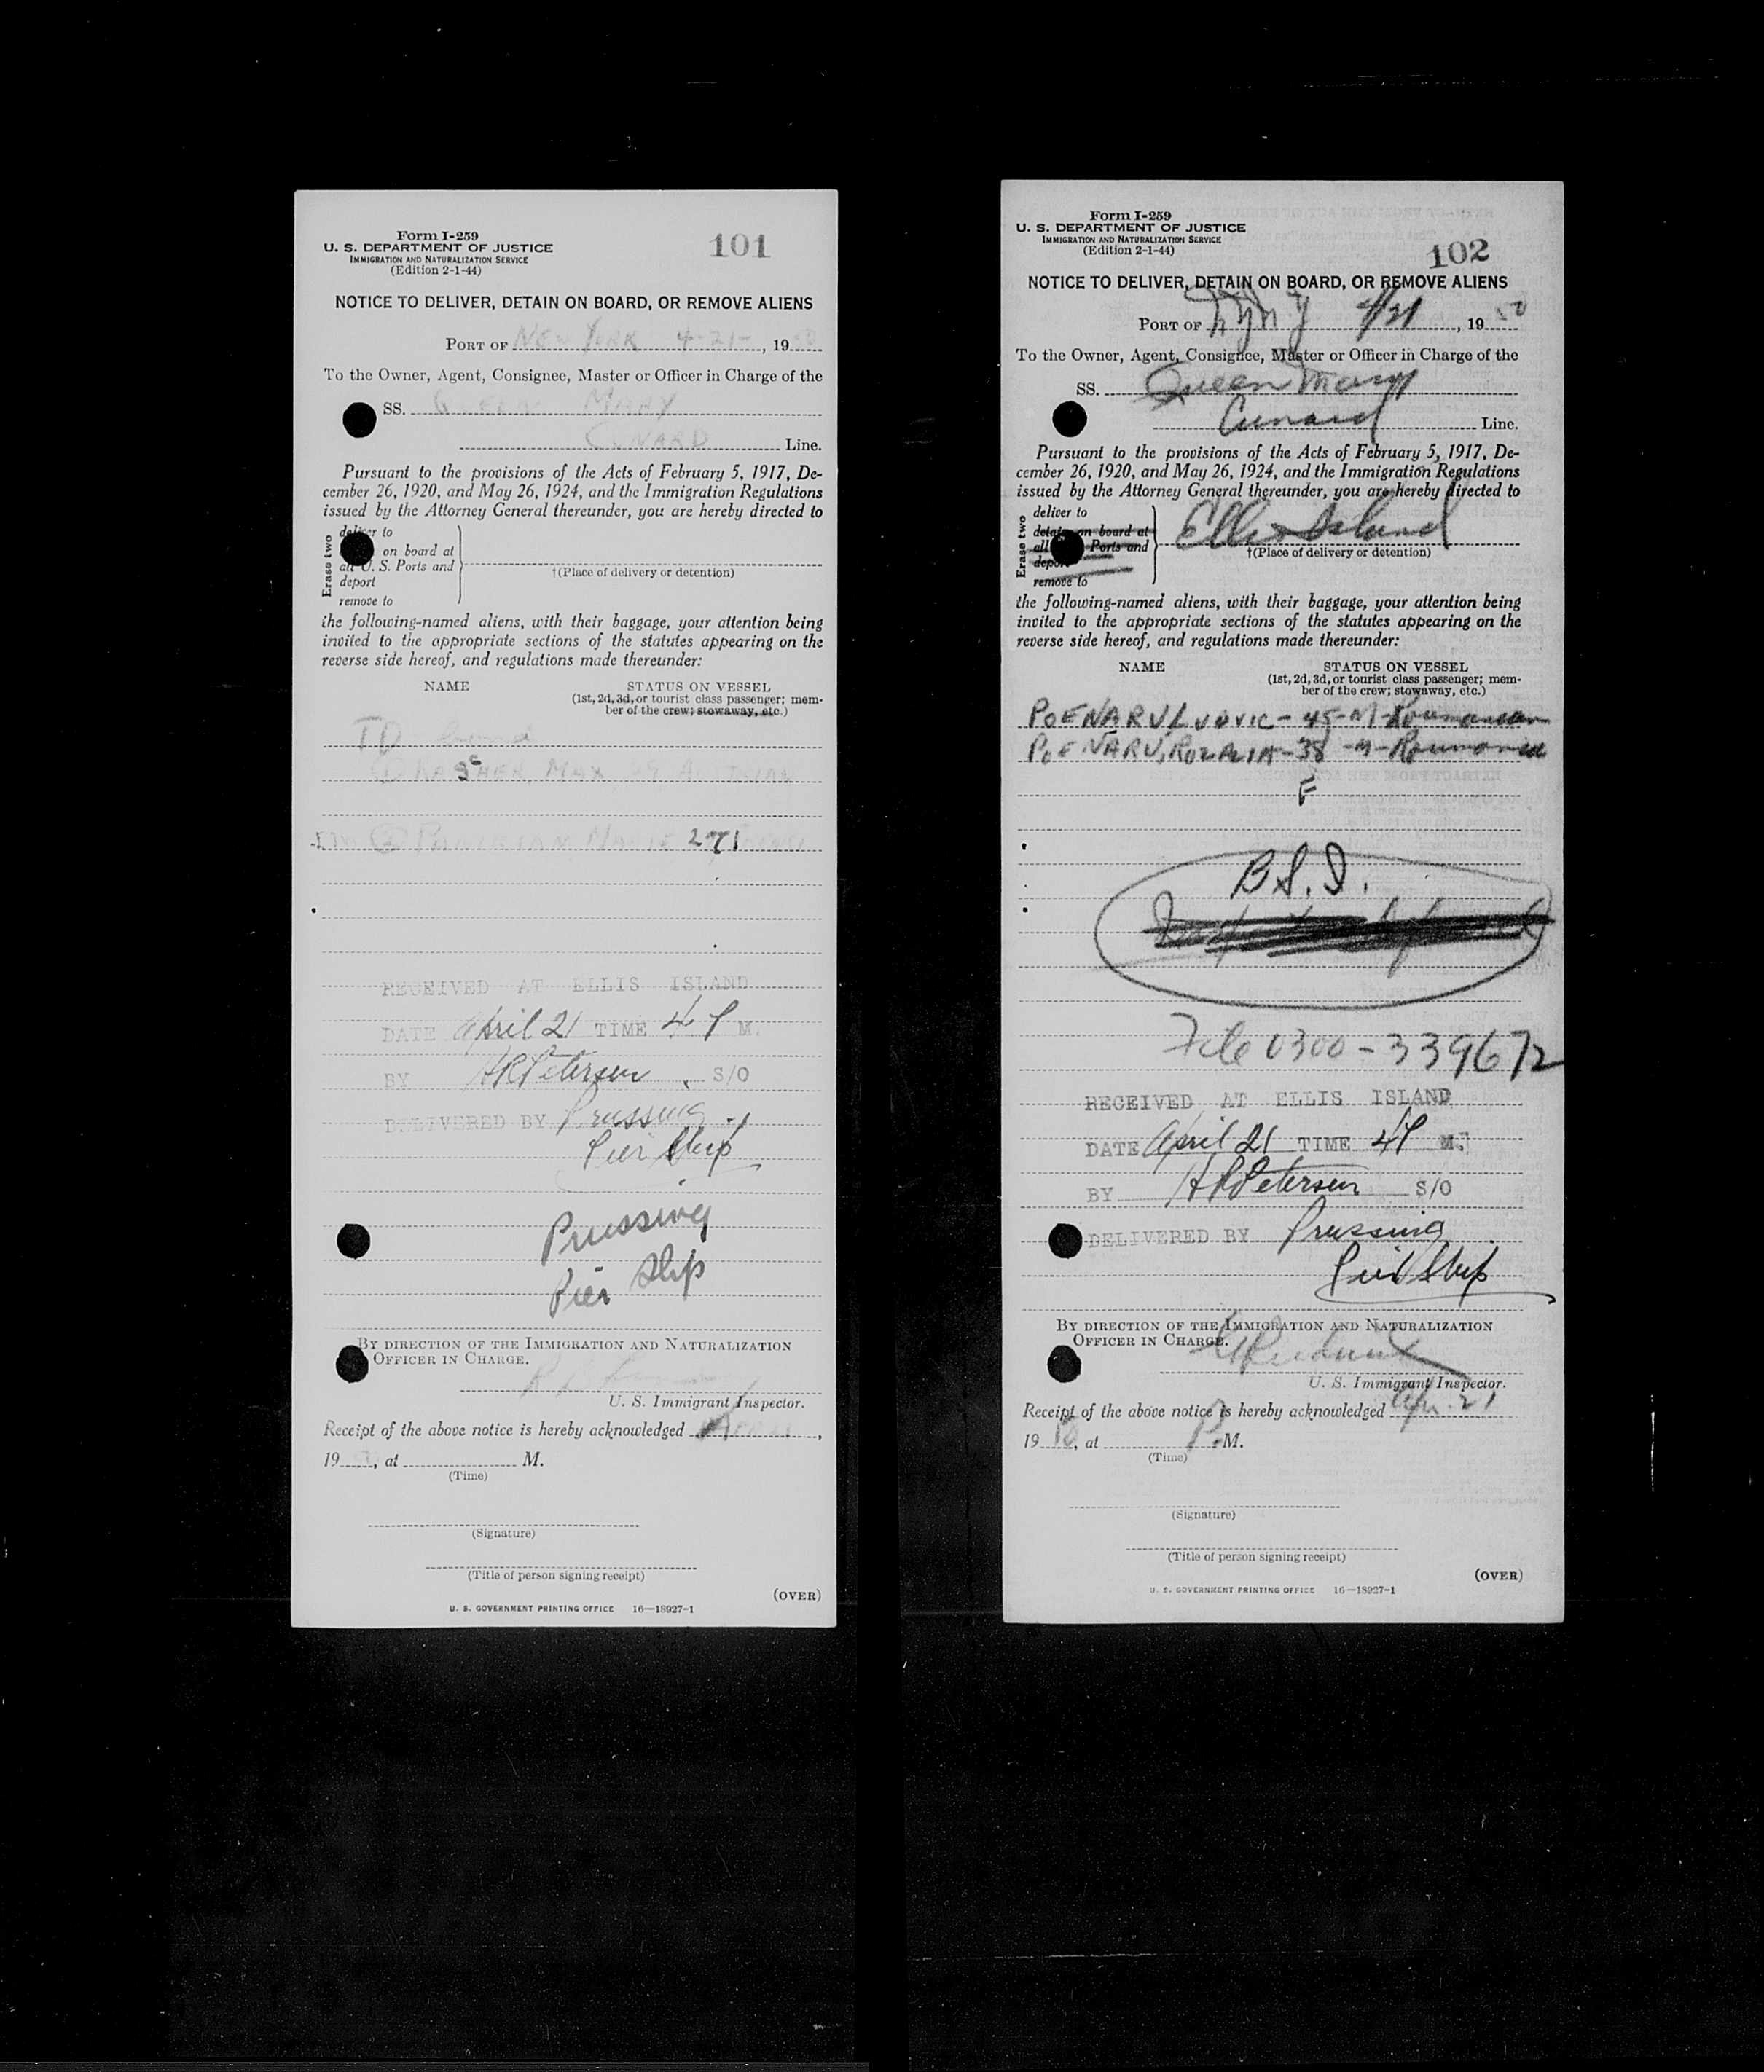 Form I-259
U. S. DEPARTMENT OF JUSTICE
IMMIGRATION AND NATURALIZATION SERVICE
(Edition 2-1-44)
101
NOTICE TO DELIVER, DETAIN ON BOARD, OR REMOVE ALIENS
PORT OF NEW YORK 4-21-, 19 50
To the Owner, Agent, Consignee, Master or Officer in Charge of the
SS. QUEEN MARY
CUNARD Line.
Pursuant to the provisions of the Acts of February 5, 1917, De-
cember 26, 1920, and May 26, 1924, and the Immigration Regulations
issued by the Attorney General thereunder, you are hereby directed to
Erase two
deliver to
on board at
all U. S. Ports and
deport
remove to
†(Place of delivery or detention)
the following-named aliens, with their baggage, your attention being
invited to the appropriate sections of the statutes appearing on the
reverse side hereof, and regulations made thereunder:
NAME
STATUS ON VESSEL
(1st, 2d, 3d, or tourist class passenger; mem-
ber of the crew; stowaway, etc.)
TD
MAX
271
RECEIVED AT ELLIS ISLAND
DATE April 21 TIME 4 P M.
BY H R Petersen S/O
DELIVERED BY Prussing
Pier Ship
Prussing
Pier Ship
BY DIRECTION OF THE IMMIGRATION AND NATURALIZATION
OFFICER IN CHARGE.
U. S. Immigrant Inspector.
Receipt of the above notice is hereby acknowledged
19, at M.
(Time)
(Signature)
(Title of person signing receipt)
(OVER)
U. S. GOVERNMENT PRINTING OFFICE 16—18927-1
Form I-259
U. S. DEPARTMENT OF JUSTICE
IMMIGRATION AND NATURALIZATION SERVICE
(Edition 2-1-44)
102
NOTICE TO DELIVER, DETAIN ON BOARD, OR REMOVE ALIENS
PORT OF N Y N Y 4/21, 19 50
To the Owner, Agent, Consignee, Master or Officer in Charge of the
SS. Queen Mary
Cunard Line.
Pursuant to the provisions of the Acts of February 5, 1917, De-
cember 26, 1920, and May 26, 1924, and the Immigration Regulations
issued by the Attorney General thereunder, you are hereby directed to
Erase two
deliver to
detain on board at
all Ports and
deport
remove to
Ellis Island
†(Place of delivery or detention)
the following-named aliens, with their baggage, your attention being
invited to the appropriate sections of the statutes appearing on the
reverse side hereof, and regulations made thereunder:
NAME
STATUS ON VESSEL
(1st, 2d, 3d, or tourist class passenger; mem-
ber of the crew; stowaway, etc.)
POENARU, LUDVIC - 45 - M - Roumanian
POENARU, ROZALIA - 38 - M - Roumanian
F
B.S.I.
File 0300-339672
RECEIVED AT ELLIS ISLAND
DATE April 21 TIME 4 P M.
BY H R Petersen S/O
DELIVERED BY Prussing
Pier Ship
BY DIRECTION OF THE IMMIGRATION AND NATURALIZATION
OFFICER IN CHARGE.
U. S. Immigrant Inspector.
Receipt of the above notice is hereby acknowledged Apr. 21
19 50, at P. M.
(Time)
(Signature)
(Title of person signing receipt)
(OVER)
U. S. GOVERNMENT PRINTING OFFICE 16—18927-1